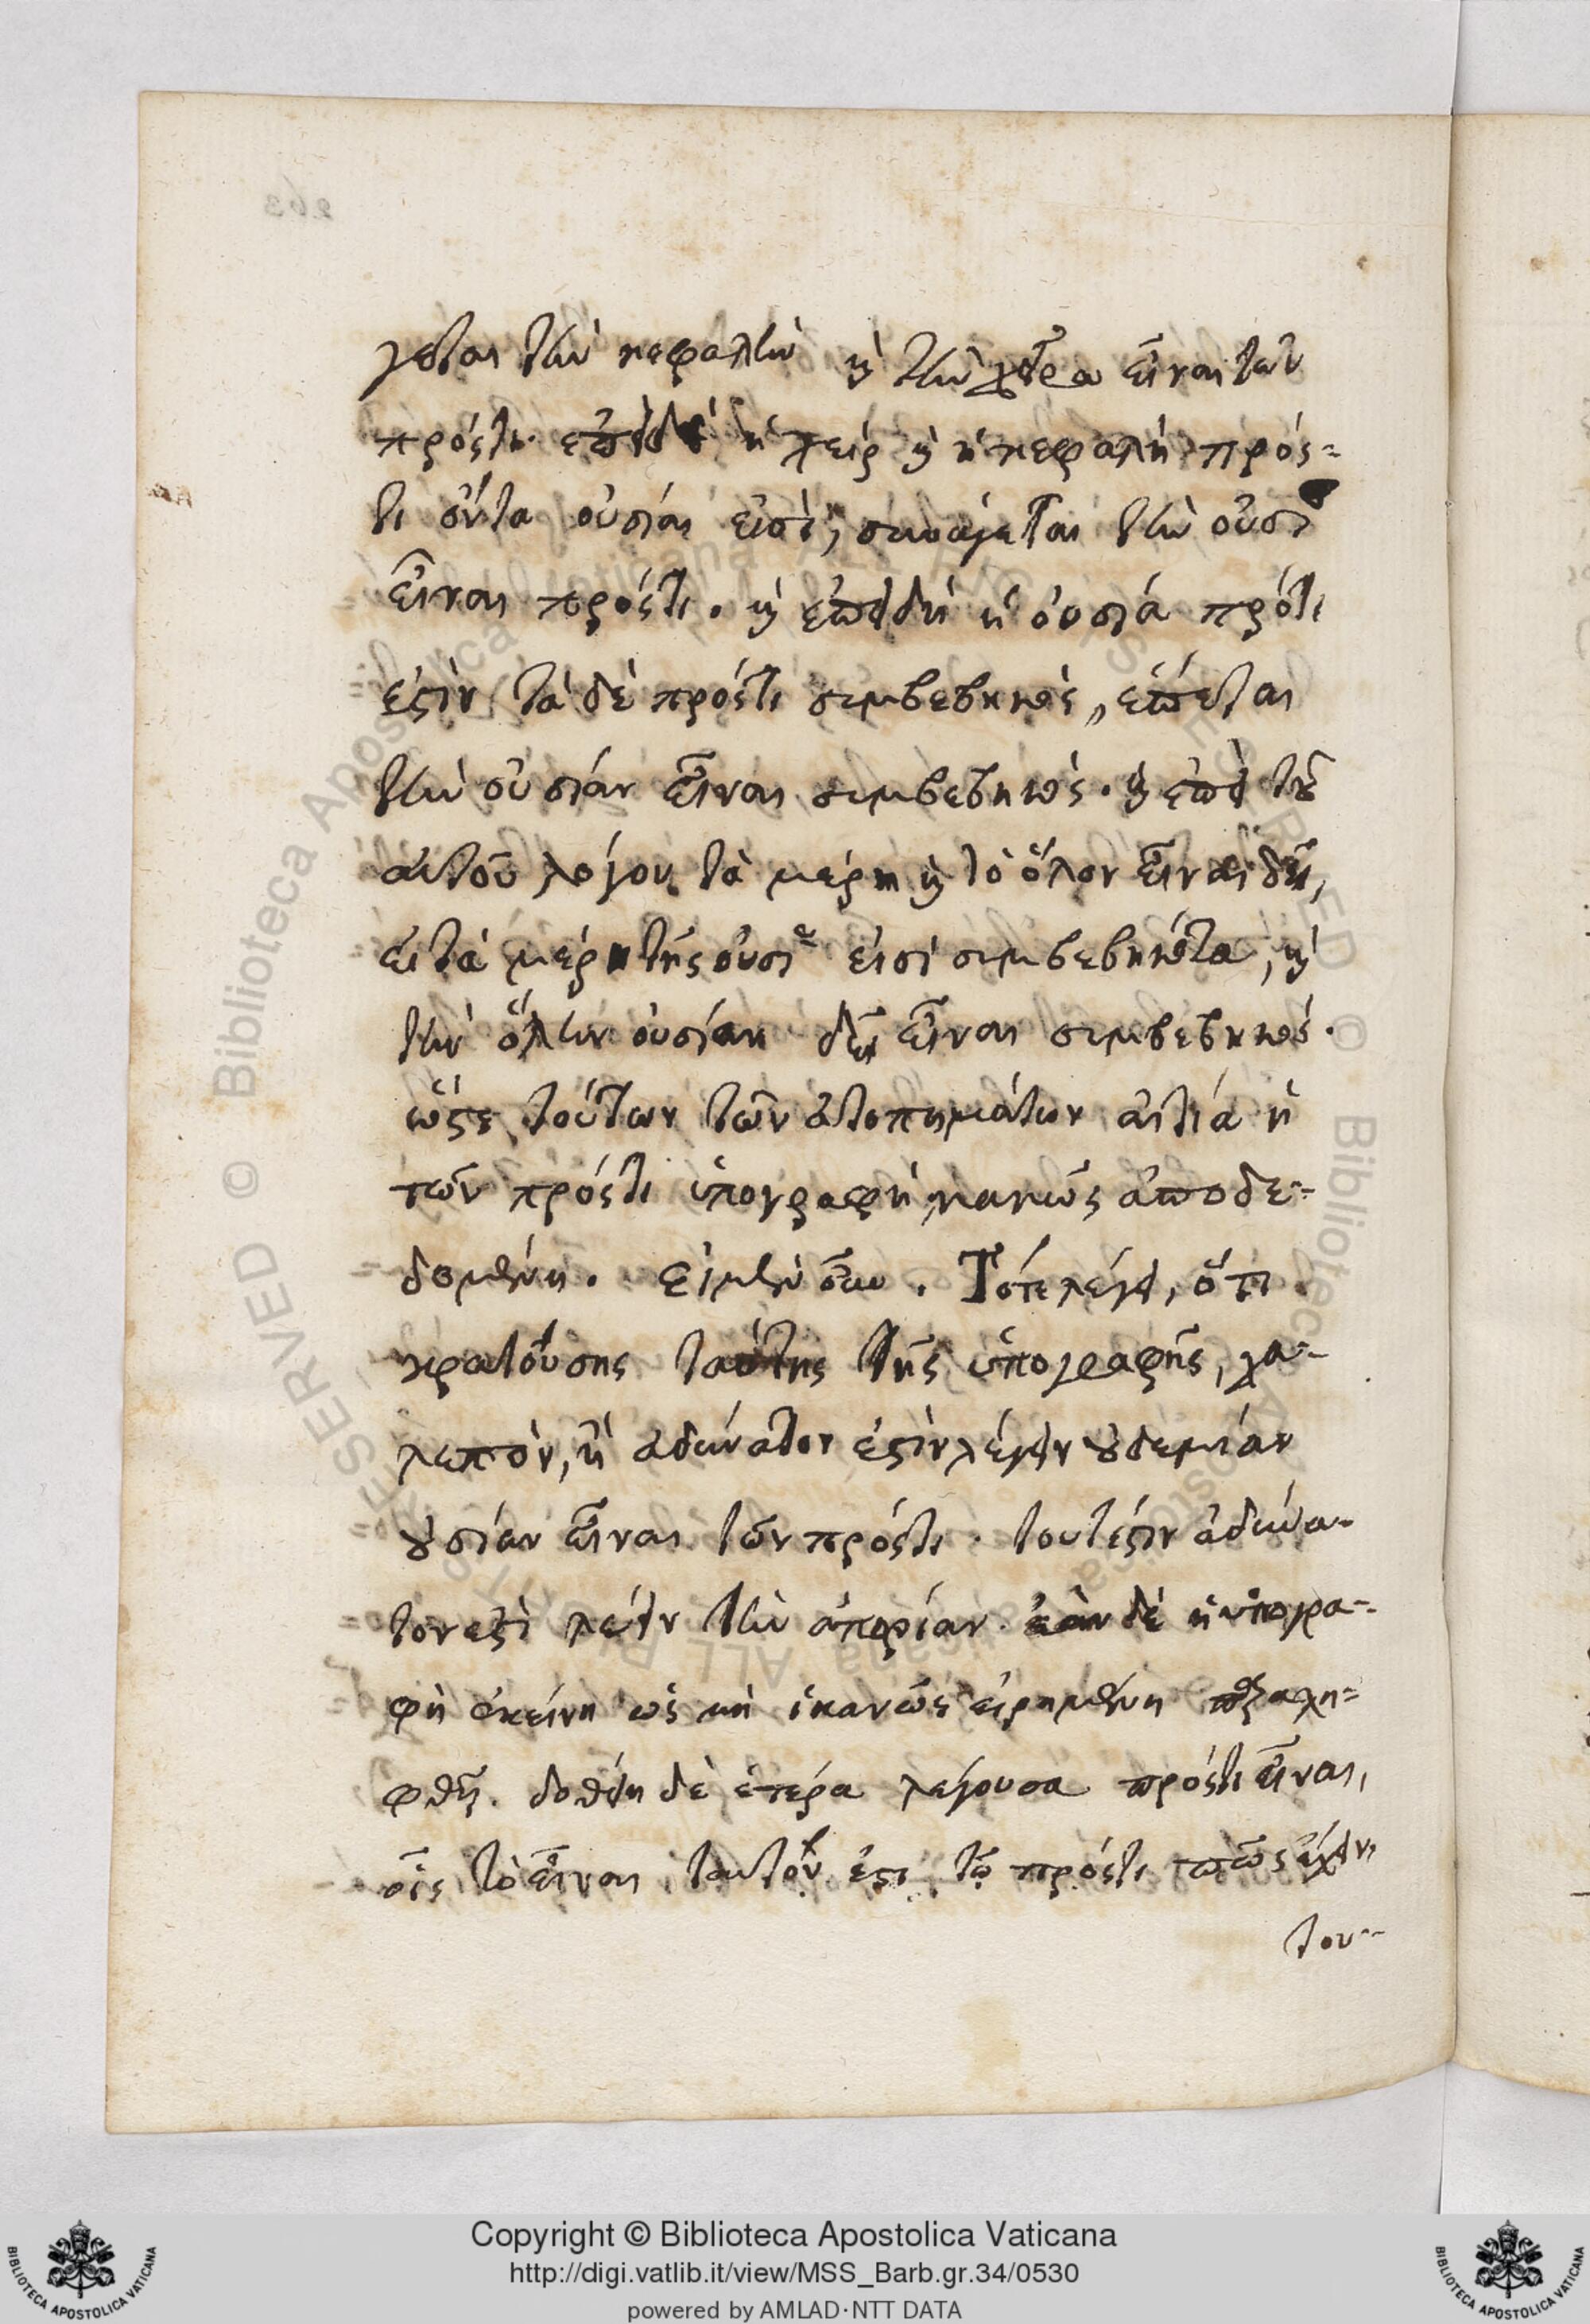 γεται τὴν κεφαλὴν καὶ τὴν χεῖρα εἶναι τῶν
πρός τι. ἐπειδὴ ἡ χεὶρ καὶ ἡ κεφαλὴ πρός-
τι ὄντα οὐσίαι εἰσὶ, συνάγεται τὴν οὐσί
εἶναι πρός τι. καὶ ἐπειδὴ ἡ οὐσία πρό τι
ἐστὶν τὰ δὲ πρός τι συμβεβηκὸς, ἕπεται
τὴν οὐσίαν εἶναι συμβεβηκὸς. καὶ ἐπεὶ τοῦ
αὐτοῦ λόγου τὰ μέρη καὶ τὸ ὅλον εἶναι δεῖ,
εἰ τὰ μέρη τῆς οὐσίας εἰσὶ συμβεβηκότα, καὶ
τὴν ὅλην οὐσίαν δεῖ εἶναι συμβεβηκός.
ὥστε τούτων τῶν ἀτοπημάτων αἰτία ἡ
τῶν πρός τι ὑπογραφὴ, κακῶς ἀποδε-
δομένη. Εἰ μὲν οὖν. Τότε λέγει, ὅτι
κρατούσης ταύτης τῆς ὑπογραφῆς, χα-
λεπὸν, ἢ ἀδύνατον ἐστὶν λέγειν οὐδεμίαν
οὐσίαν εἶναι τῶν πρός τι. τουτέστιν ἀδύνα-
τον ἐστὶ λύειν τὴν ἀπορίαν. ἐὰν δὲ ἡ ὑπογρα-
φὴ ἐκείνη ὡς μὴ ἱκανῶς εἰρημένη παραλη-
φθῇ. δοθείη δὲ ἑτέρα λέγουσα πρός τι εἶναι,
οἷς τὸ εἶναι ταυτόν ἐστι τῷ πρός τι πῶς ἔχειν,
του-
Copyright © Biblioteca Apostolica Vaticana
http://digi.vatlib.it/view/MSS_Barb.gr.34/0530
powered by AMLAD·NTT DATA